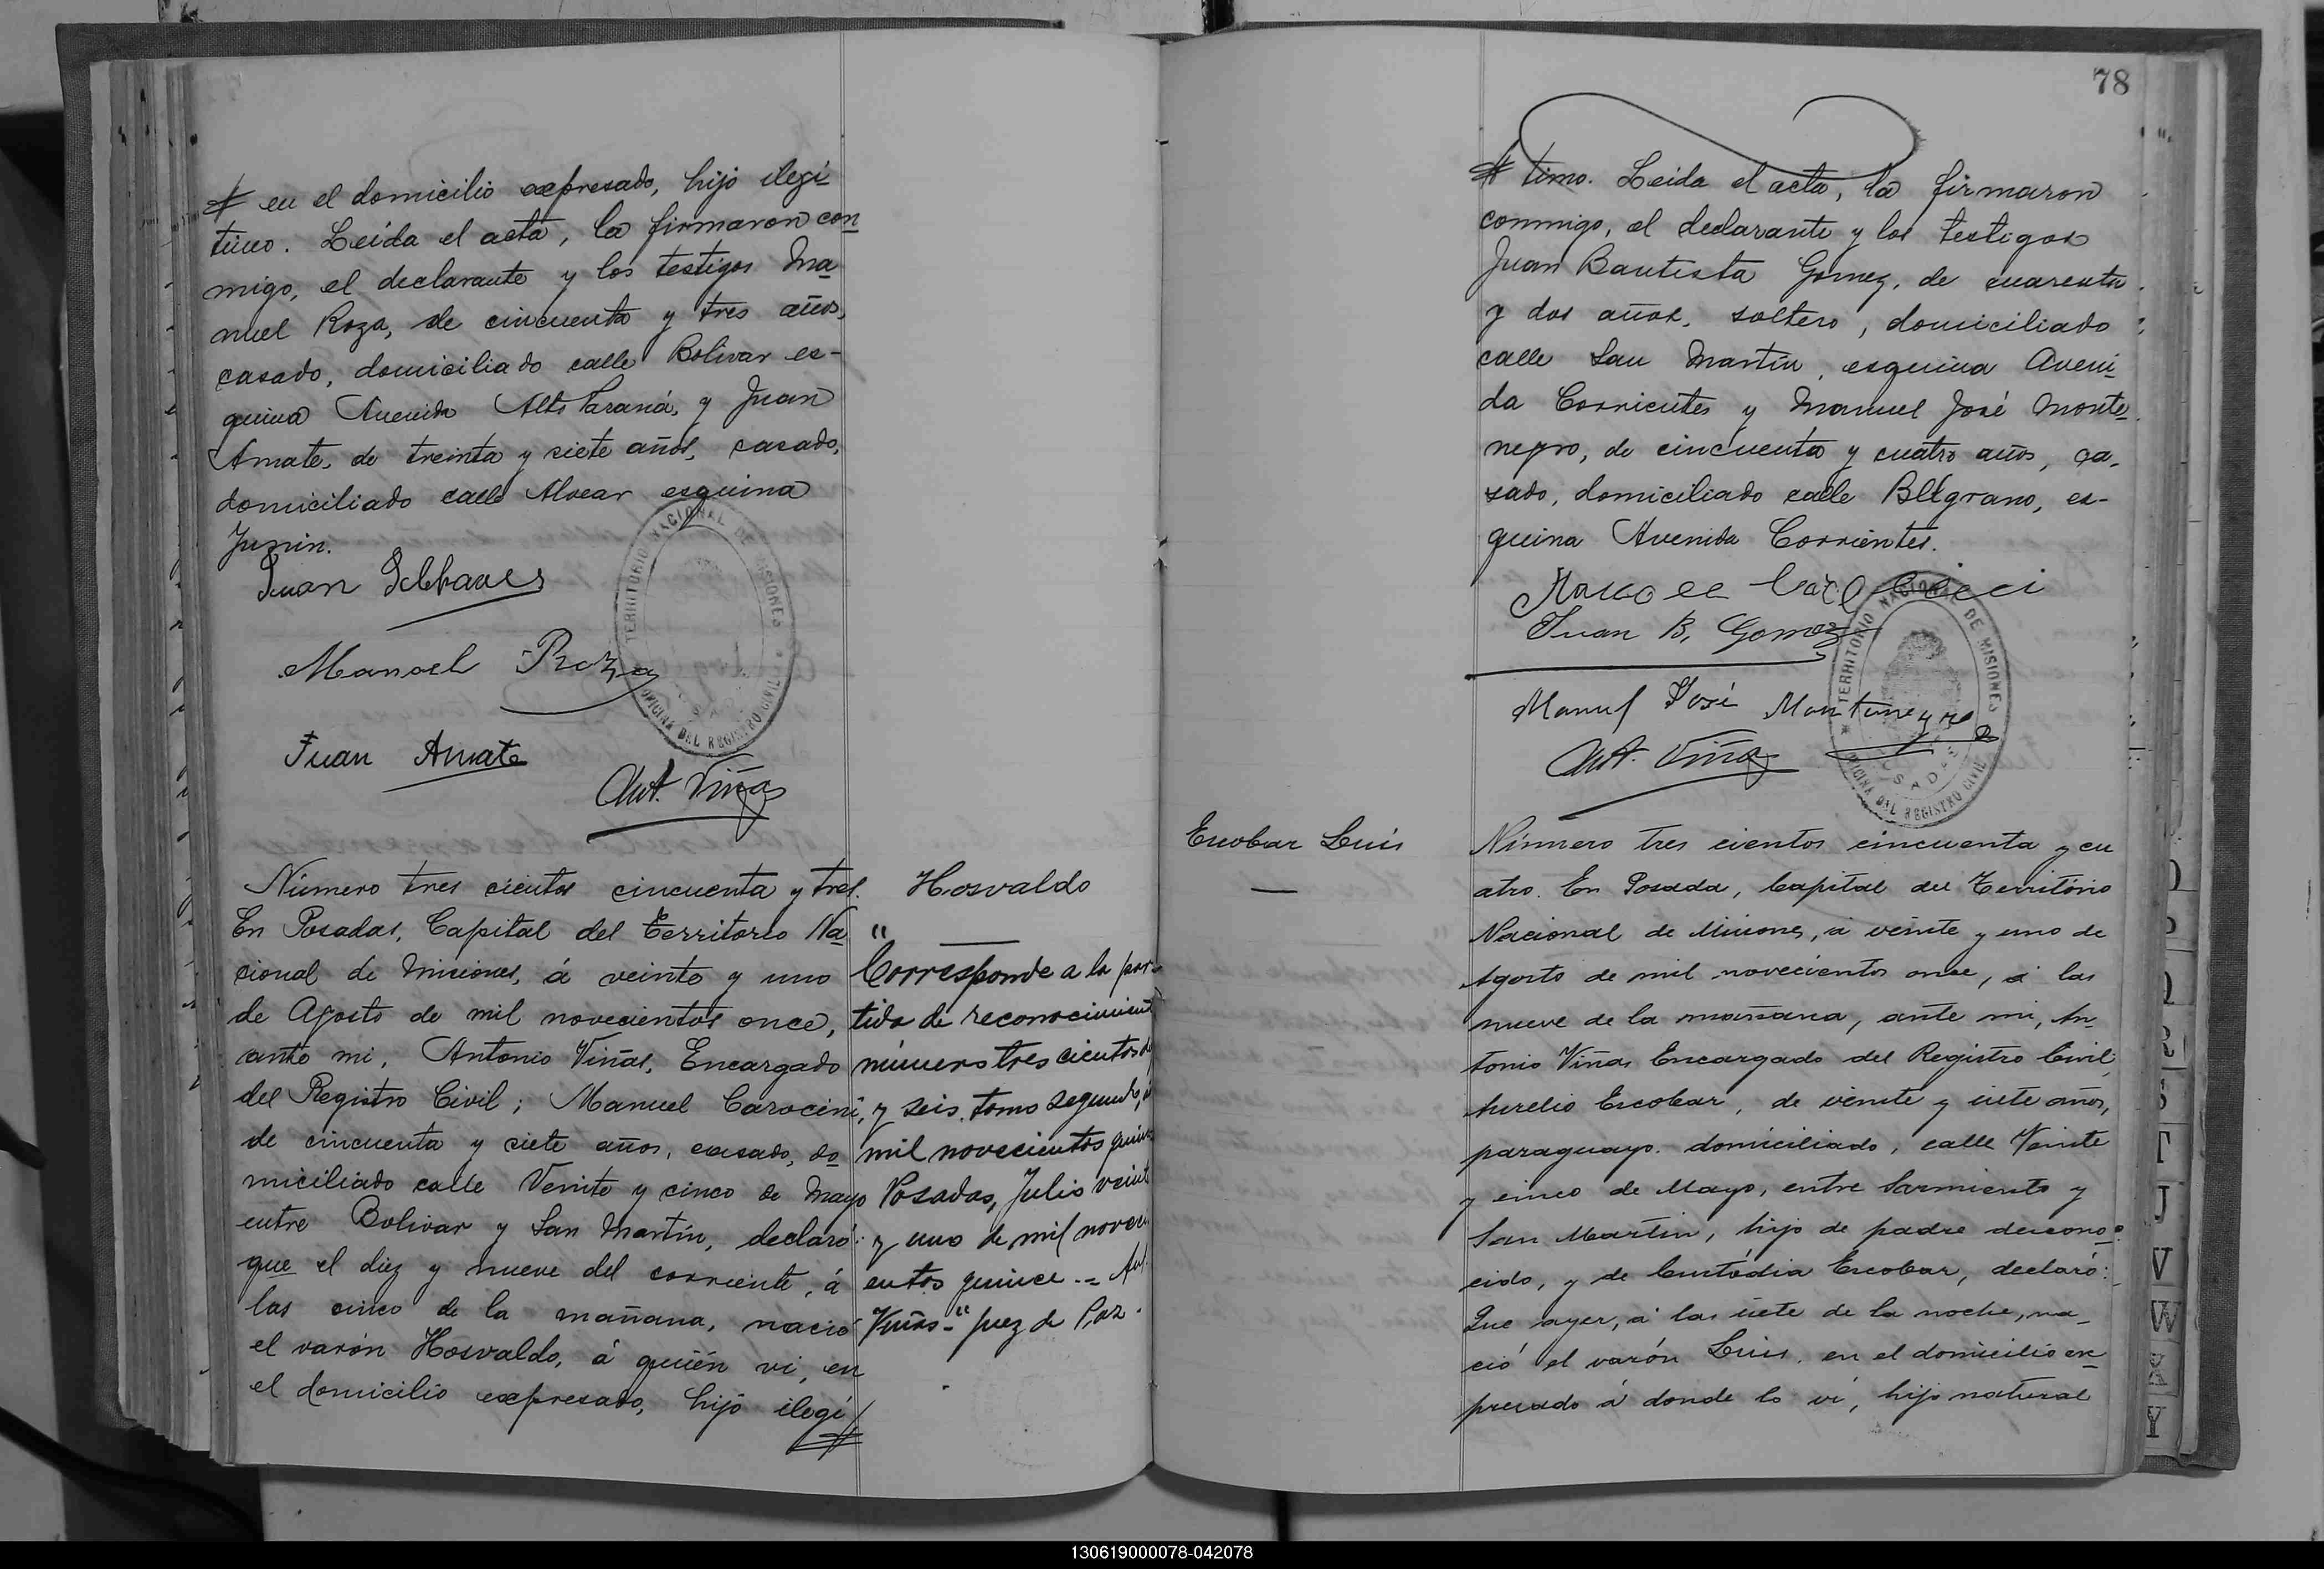 # en el domicilio expresado, hijo ilegí
timo. Leida el acta, la firmaron con
migo, el declarante y los testigos Ma
nuel Roza, de cincuenta y tres años,
casado, domiciliado calle Bolivar es-
quina Avenida Alto Paraná, y Juan
Amate, de treinta y siete años, casado,
domiciliado calle Alvear esquina
Junin.
Juan
Manoel Roza
Juan Amate
Ant. Viñas
TERRITORIO NACIONAL DE MISIONES
OFICINA DEL REGISTRO CIVIL
Número tres cientos cincuenta y tres.
En Posadas, Capital del Territorio Na
cional de Misiones, á veinte y uno
de Agosto de mil novecientos once,
ante mi, Antonio Viñas, Encargado
del Registro Civil; Manuel Carocini,
de cincuenta y siete años, casado, do
miciliado calle Veinte y cinco de Mayo
entre Bolivar y San Martín, declaró:
que el diez y nueve del corriente, á
las cinco de la mañana, nació
el varón Hosvaldo, á quién vi, en
el domicilio expresado, hijo ilegí
Hosvaldo
"
Corresponde a la par
tida de reconocimient
número tres cientos
y seis, tomo segundo,
mil novecientos quin
Posadas, Julio veint
y uno de mil noveci
entos quince.= Ant.
Viñas=" Juez de Paz.
78
# timo. Leida el acta, la firmaron
conmigo, el declarante y los testigos
Juan Bautista Gomez, de cuarenta
y dos años, soltero, domiciliado
calle San Martín, esquina Aveni
da Corrientes y Manuel José Monte
negro, de cincuenta y cuatro años, ca-
sado, domiciliado calle Belgrano, es-
quina Avenida Corrientes.
Juan B. Gomez
Manuel José Montenegro
Ant. Viñas
TERRITORIO NACIONAL DE MISIONES
POSADAS
OFICINA DEL REGISTRO CIVIL
Escobar Luis
Número tres cientos cincuenta y cu
atro. En Posada, Capital del Território
Nacional de Misiones, á veinte y uno de
Agosto de mil novecientos once, á las
nueve de la mañana, ante mi, An
tonio Viñas Encargado del Registro Civil,
Aurelio Escobar, de veinte y siete años,
paraguayo. domiciliado, calle Veinte
y cinco de Mayo, entre Sarmiento y
San Martin, hijo de padre descono-
cido, y de Custódia Escobar, declaró:
Que ayer, á las siete de la noche, na-
ció el varón Luis, en el domicilio ex-
presado á donde lo vi, hijo natural
O
P
Q
R
S
T
J
V
W
X
Y
130619000078-042078